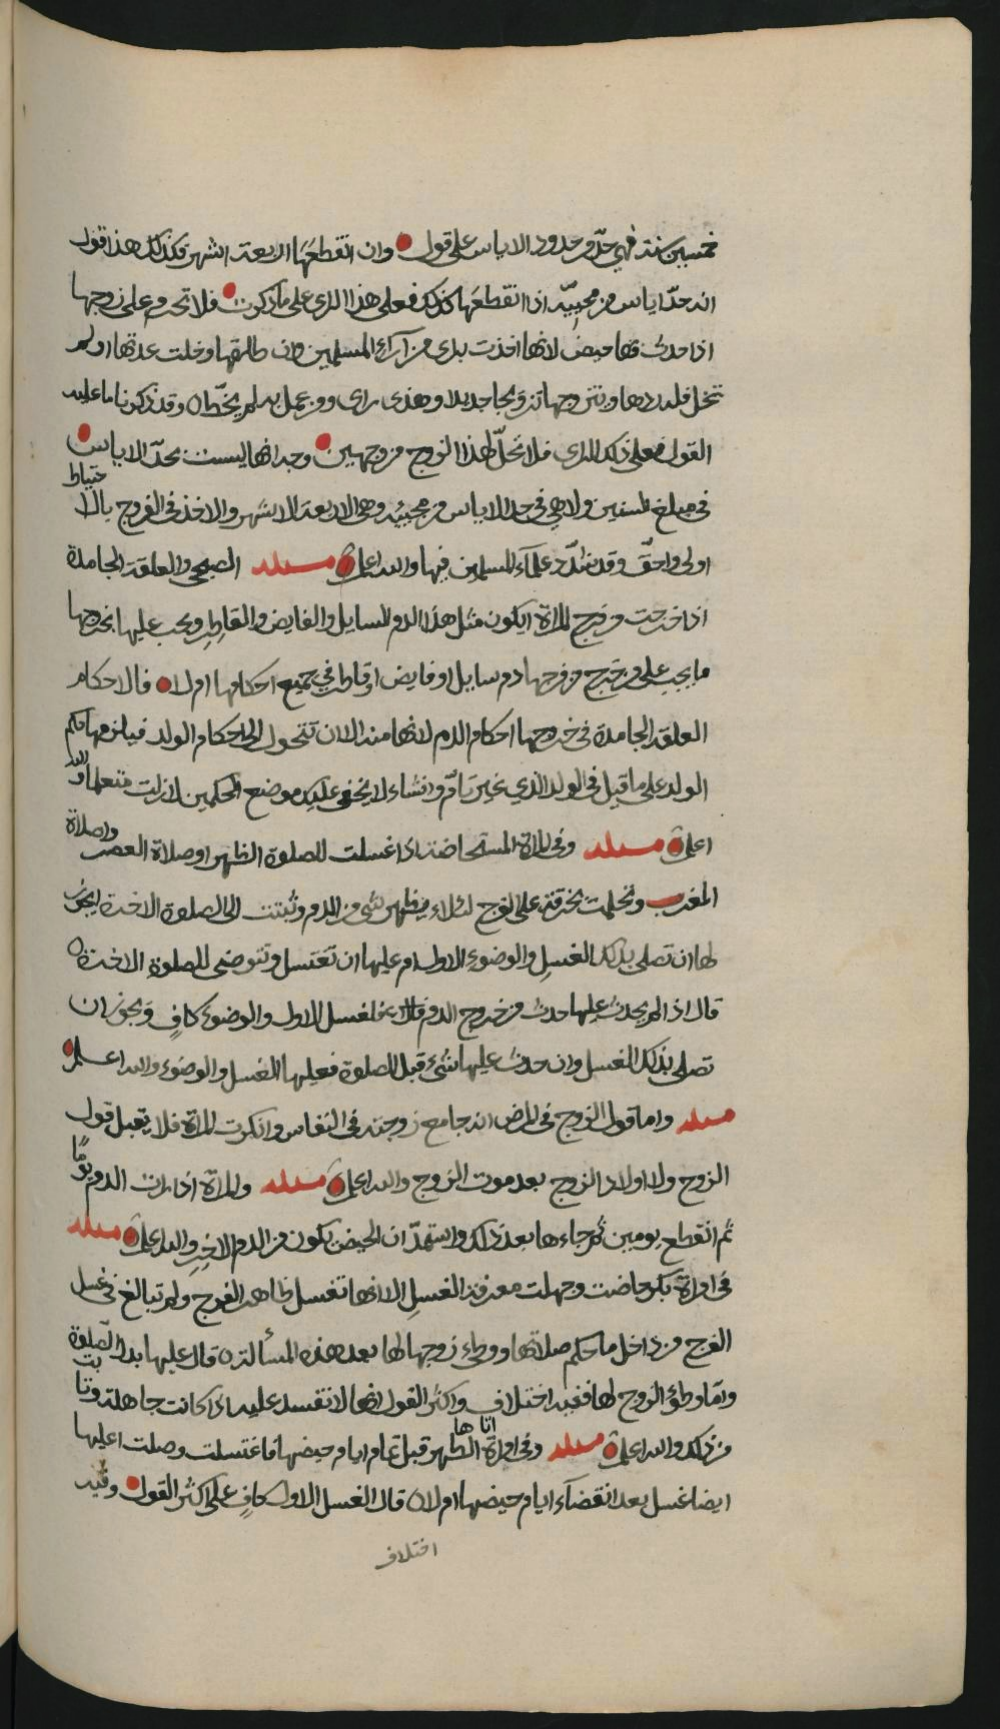 خمسين سنة فهي حدّ من حدود الاياس على قول وان انقطعها اربعة اشهر فكذلك هذا قول
انه حدّ اياس من محييه اذا انقطعها كذلك فعلى هذا الراي على ما ذكرت فلا تحرم على زوجها
اذا حدث لها حيض لانها اخذت براي من آراء المسلمين وان طالقها وخلت عدتها اولم
تخل فله ردها ويتزوجها تزويجا جديدا وهذى راى ومن عمل به لم يخطا وقد ذكرنا ما عليه
القول فعلى ذلك الراى فلا تحلّ لهذا الزوج من وجهين وجه انها ليست بحدّ الاياس
في مبلغ السنين ولا هي في حد الاياس من محييه وهى الاربعة الاشهر والاخذ فى الفروج بالاحتياط
اولى واحقّ وقد شدّد علمآء المسلمين فيها والله اعلم مسئله الصبحي والعلقة الجامدة
اذا خرجت من فرج المراة ايكون مثل هذا الدم السايل والفايض والقاطر ويجب عليها بخروجها
ما يجب على من خرج من فرجها دم سايل او فايض او قاطر في جميع احكامها ام لا قال احكام
العلقة الجامدة في خروجها احكام الدم لانها منه الا ان تتحول الى احكام الولد فيلزمها حكم
الولد على ما قيل فى الولد الذي غير تامّ وان شاء لا يخفى عليك موضع الحكمين لا زلت متعلما والله
اعلم مسئله وفي المراة المستحاضة اذا غسلت للصلوة الظهر او صلاة العصر وصلاة
المغرب وتحملت بخرقة على الفرج لئلاء يظهر شي من الدم وثبتت الى الصلوة الاخرة ايجوز
لها ان تصلى بذلك الغسل والوضوء الاول ام عليها ان تغتسل وتتوضى للصلوة الاخرة
قال اذا لم يحدث عليها حدث من خروج الدم فالغسل الاول والوضوء كافٍ ويجوز ان
تصلى بذلك الغسل وان حدث عليها شيء قبل الصلوة فعليها الغسل والوضوء والله اعلم
مسئله واما قول الزوج في المرض انه جامع زوجته في النفاس وانكرت المراة فلا يقبل قول
الزوج ولا اولاد الزوج بعد موت الزوج والله اعلم مسئله والمراة اذا رات الدم يومًا
ثم انقطع يومين ثم جاءها بعد ذلك واستمدّ ان الحيض يكون من الدم الاخير والله اعلم مسئله
في امراة بكر حاضت وجهلت معرفة الغسل الا انها تغسل ظاهر الفرج ولم تبالغ في غسل
الفرج من داخل ما حكم صلاتها ووطى زوجها لها بعد هذه المسألة قال عليها بدل الصلوة
وامّا وطؤ الزوج لها ففيه اختلاف واكثر القول انها لا تفسد عليه اذا كانت جاهلة وتابت
من ذلك والله اعلم مسئله وفي امراة اتاها الطهر قبل تمام ايام حيضها فاغتسلت وصلت اعليها
ايضا غسل بعد انقضآء ايام حيضها ام لا قال الغسل الاول كافٍ على اكثر القول وفيه
اختلاف